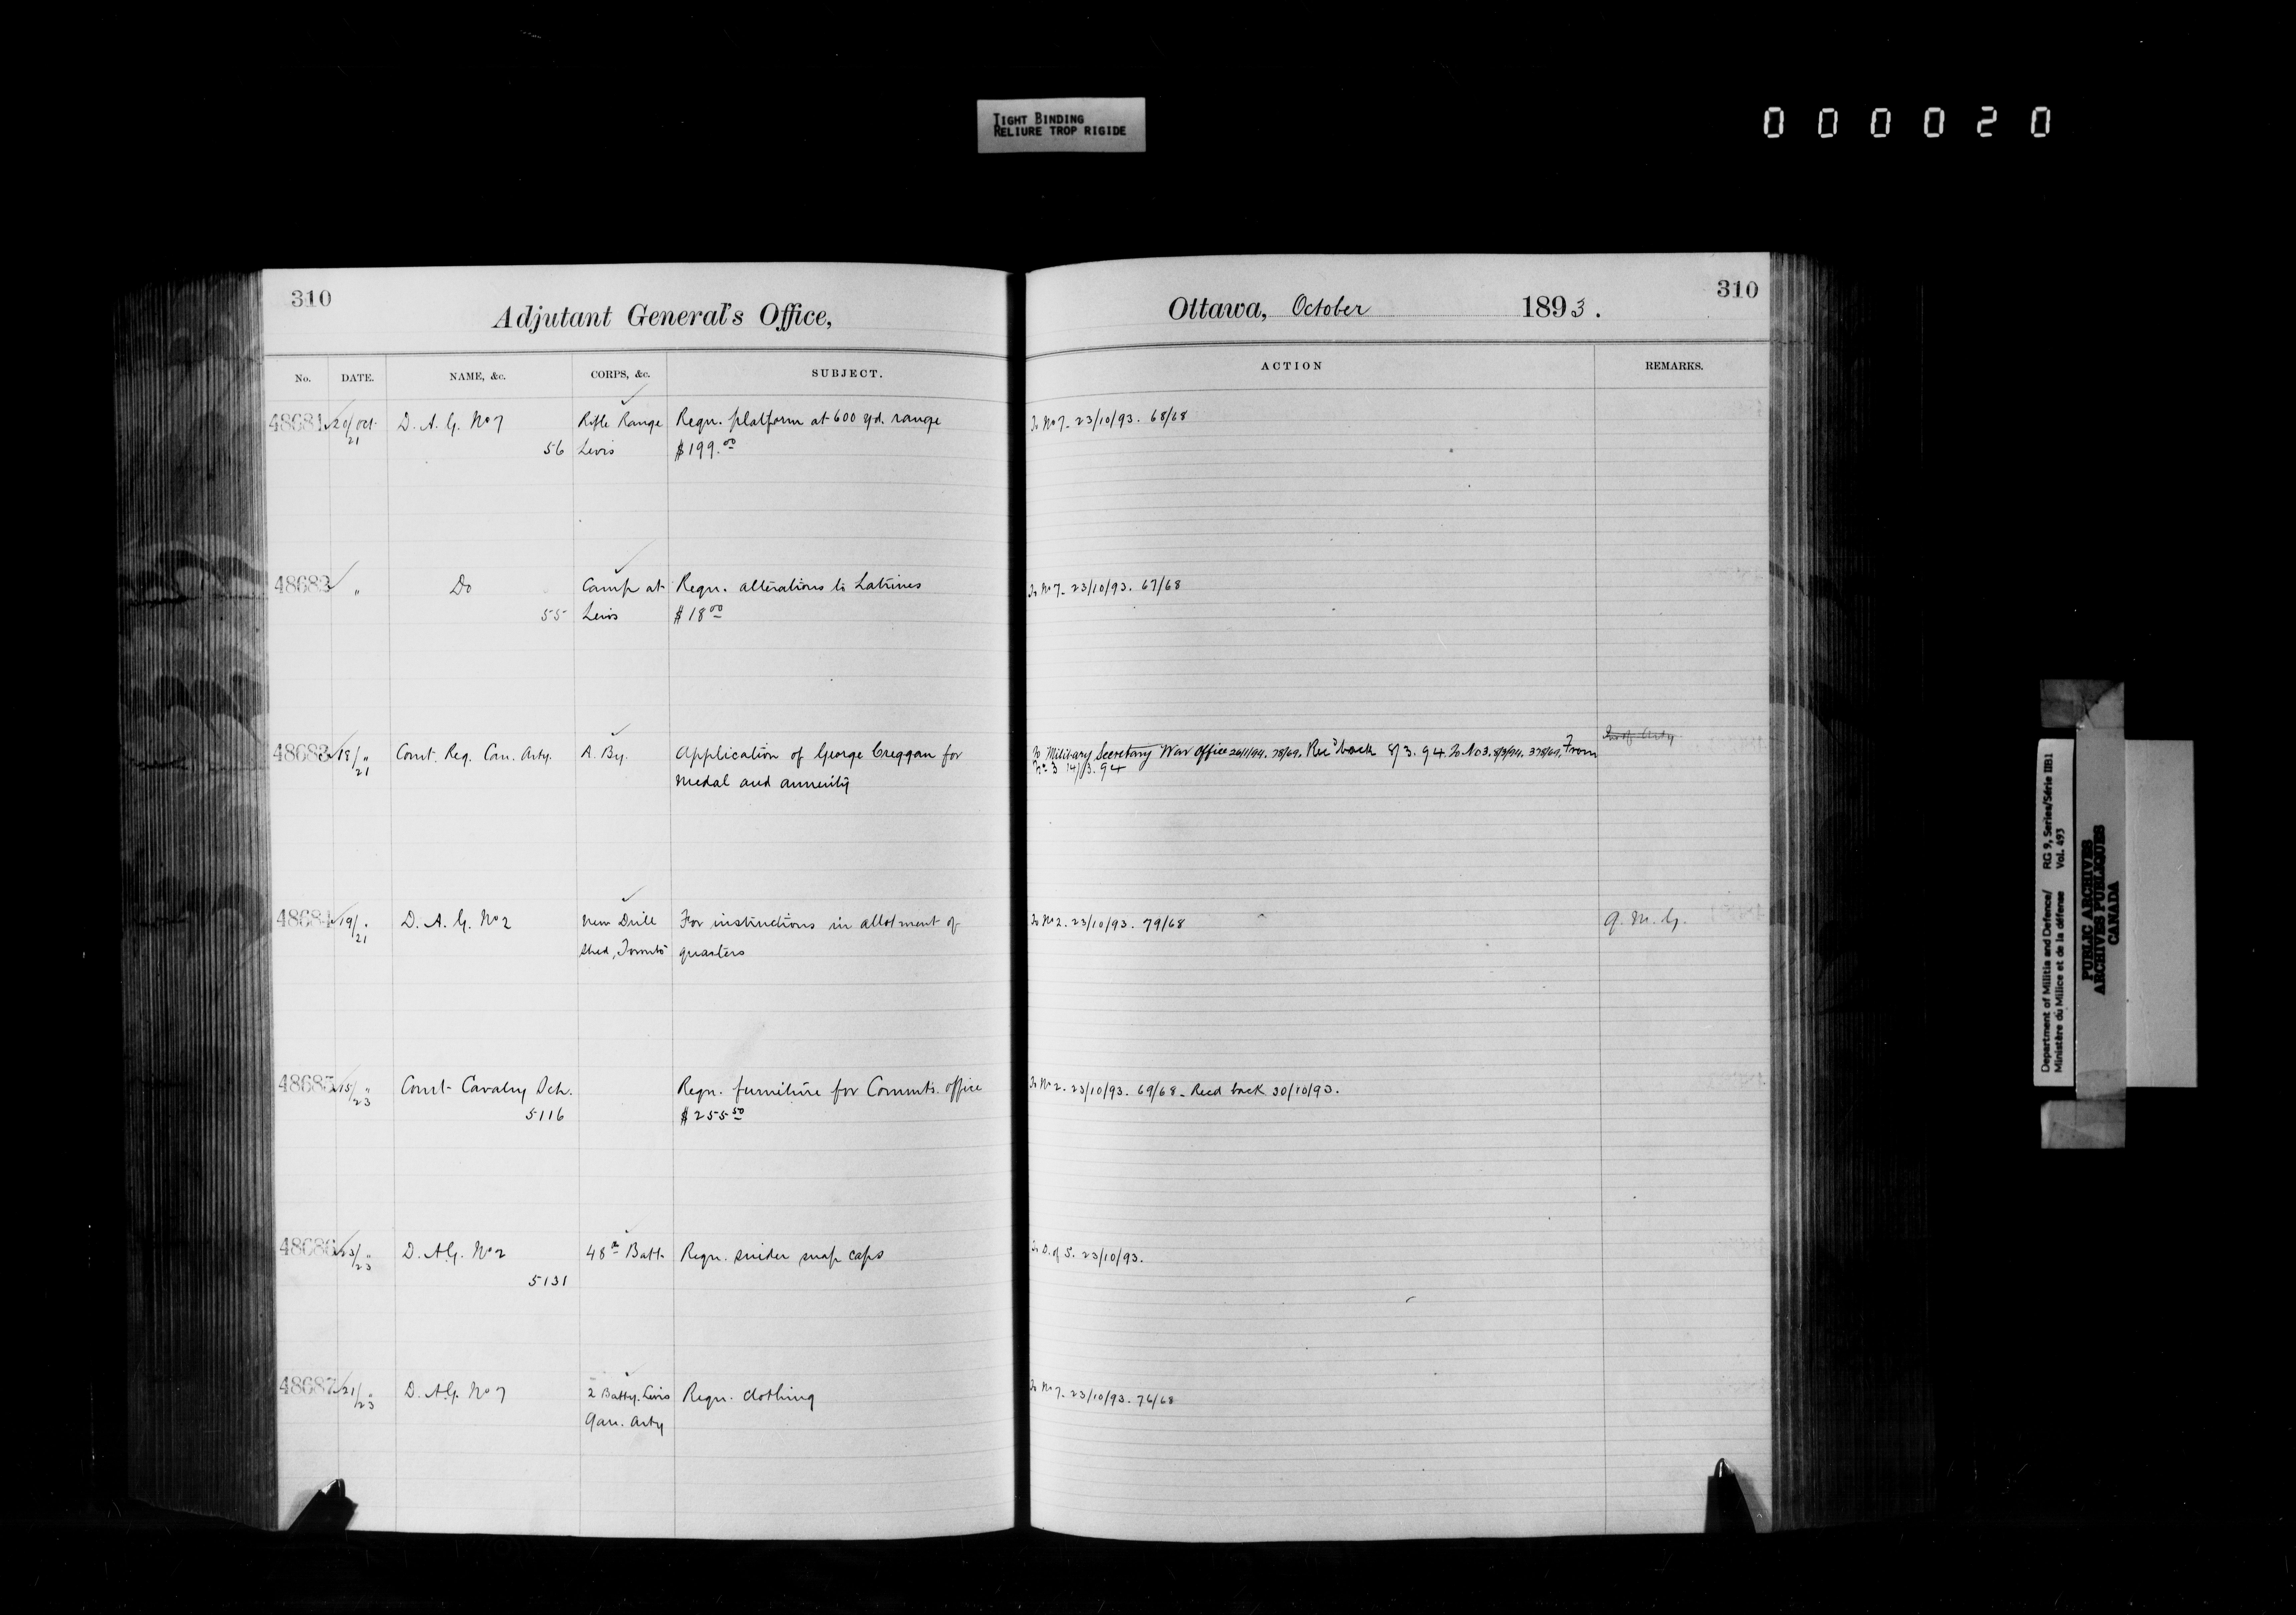 TIGHT BINDING
RELIURE TROP RIGIDE
000020
310
Adjutant General's Office,
No. DATE. NAME, &c. CORPS, &c. SUBJECT.
48681 20/Oct. D. A. G. No 7 Rifle Range Requ. platform at 600 yd. range
21 56 Levis $199.00
48682 " Do Camp at Requ. alterations to Latrines
55 Levis $18 00
48683 18/" Comt. Reg. Can. Arty. A. By. Application of George Creggan for
21 medal and annuity
48684 19/" D. A. G. No 2 New Drill For instructions in allotment of
21 Shed, Toronto quarters
48685 15/" Comt Cavalry Sch. Requ. furniture for Commts. office
23 5116 $255 50
48686 23/" D. A.G. No 2 48th Batt. Requ. snider snap caps
23 5131
48687 21/" D. A.G. No 7 2 Batty. Levis Requ. clothing
23 Gar. Arty
310
Ottawa, October 1893.
ACTION REMARKS.
To No 7. 23/10/93. 68/68
To No 7. 23/10/93. 67/68
To Military Secretary War Office 26/1/94. 78/69. Rec'd back 8/3.94. To No 3. 8/3/94. 378/69. From
No 3 14/3.94
To No 2. 23/10/93. 79/68 Q. M. G.
To No 2. 23/10/93. 69/68. Recd back 30/10/93.
To D. of S. 23/10/93.
To No 7. 23/10/93. 76/68
Department of Militia and Defence/ RG 9, Series/Série IIB1
Ministère du Milice et de la défense Vol. 493
PUBLIC ARCHIVES
ARCHIVES PUBLIQUES
CANADA